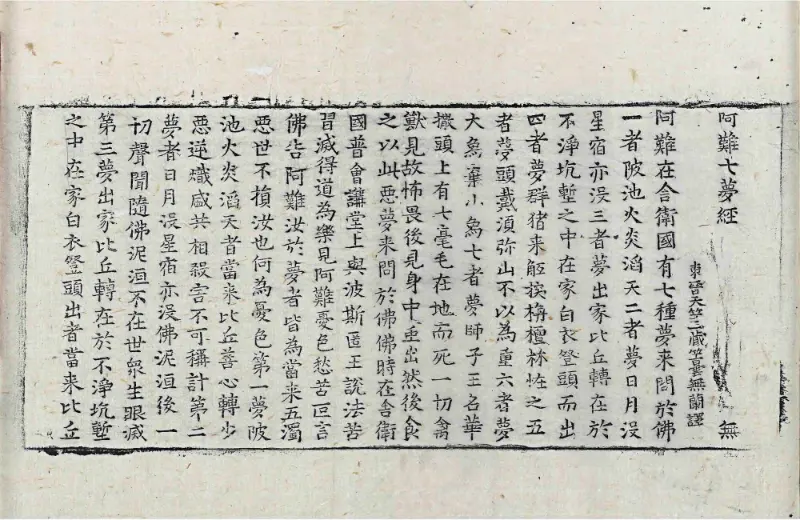 阿難七夢經　無
東晉天竺三藏竺曇無蘭譯
阿難在舍衛國有七種夢来問於佛
一者陂池火炎滔天二者夢日月没
星宿亦没三者夢出家比丘轉在於
不淨坑塹之中在家白衣登頭而出
四者夢群猪来觝揬栴檀林恠之五
者夢頭戴須弥山不以為重六者夢
大象棄小象七者夢師子王名華
撒頭上有七毫毛在地而死一切禽
獸見故怖畏後見身中虫出然後食
之以此惡夢来問於佛佛時在舍衛
國普會講堂上與波斯匿王說法苦
習滅得道為樂見阿難憂色愁苦叵言
佛告阿難汝於夢者皆為當来五濁
惡世不損汝也何為憂色第一夢陂
池火炎滔天者當来比丘善心轉少
惡逆熾盛共相殺害不可稱計第二
夢者日月没星宿亦没佛泥洹後一
切聲聞隨佛泥洹不在世衆生眼滅
第三夢出家比丘轉在於不淨坑塹
之中在家白衣登頭出者當来比丘